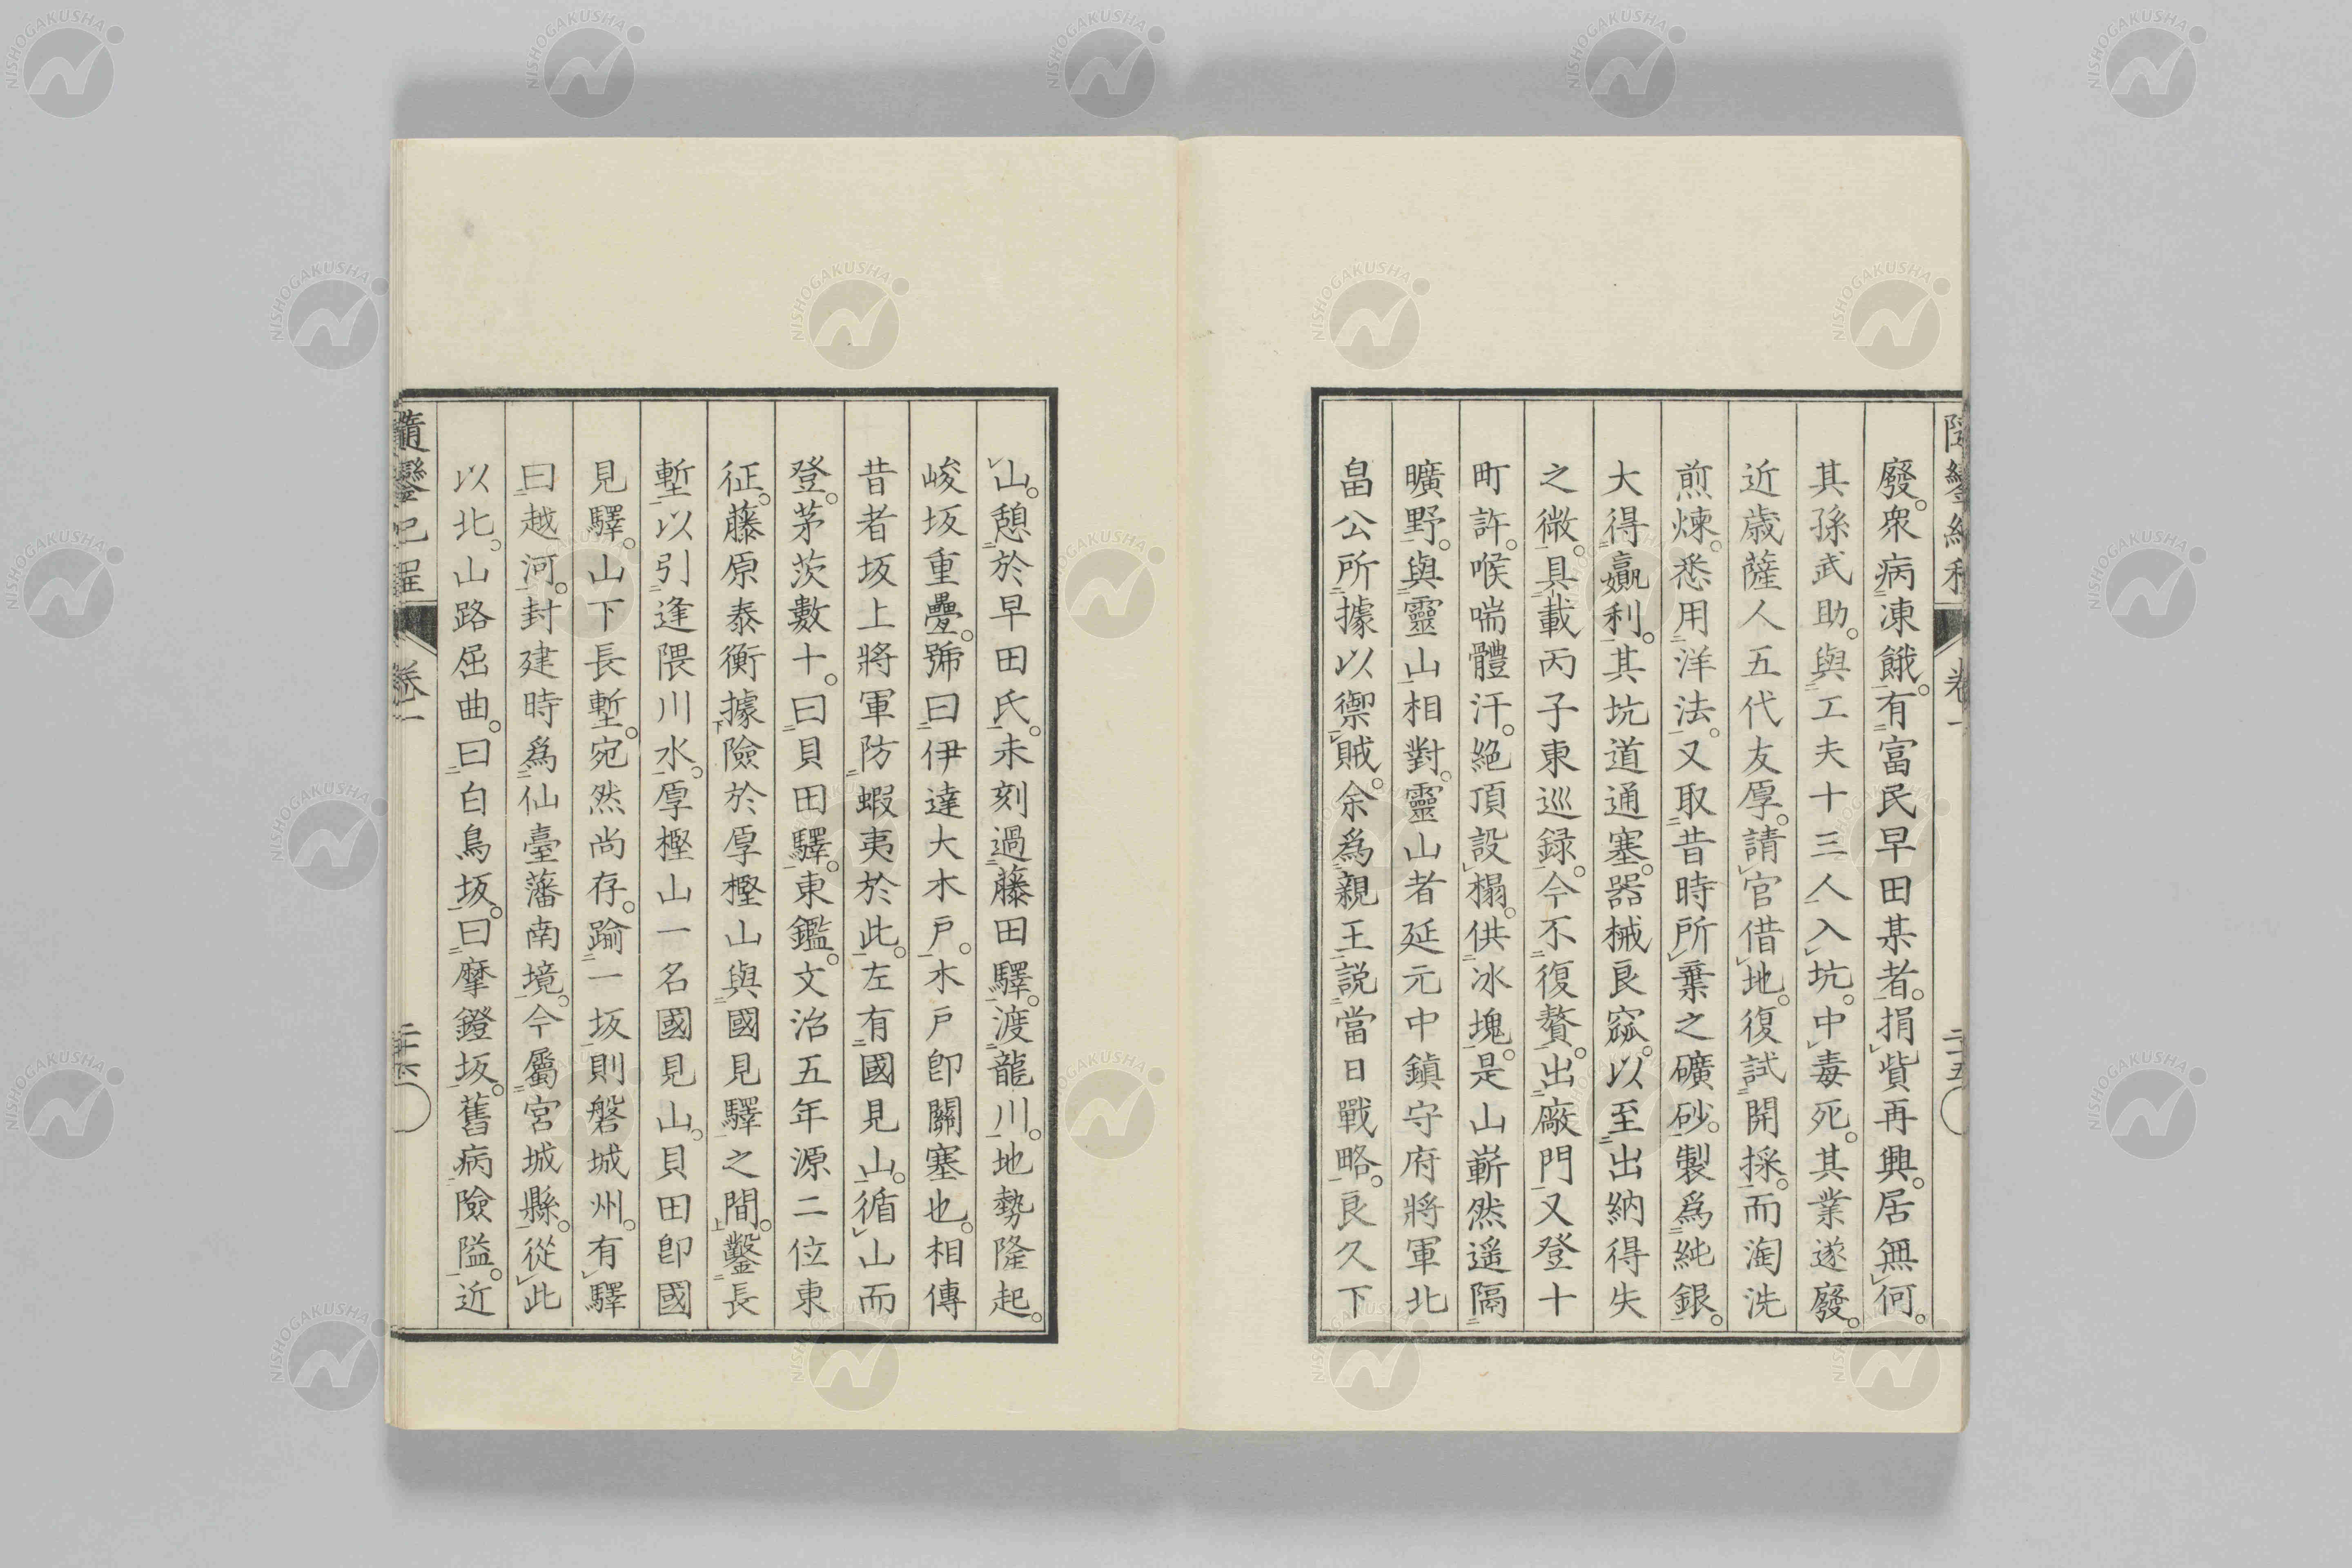 廢。衆病凍餓。有富民早田某者。捐貲再興。居無何。
其孫武助。與工夫十三人入坑。中毒死。其業遂廢。
近歳薩人五代友厚。請官借地。復試開採。而淘洗
煎煉。悉用洋法。又取昔時所棄之礦砂。製爲純銀。
大得贏利。其坑道通塞。器械良窳。以至出納得失
之微。具載丙子東巡録。今不復贅。出廠門又登十
町許。喉喘體汗。絶頂設榻。供冰塊。是山嶄然遥隔
曠野。與靈山相對。靈山者延元中鎮守府將軍北
畠公所據以禦賊。余爲親王説當日戰略。良久下
山。憩於早田氏。未刻過藤田驛。渡龍川。地勢隆起。
峻坂重疊。號曰伊達大木戸。木戸卽關塞也。相傳
昔者坂上將軍防蝦夷於此。左有國見山。循山而
登。茅茨數十。曰貝田驛。東鑑。文治五年源二位東
征。藤原泰衡據險於厚樫山與國見驛之間。鑿長
塹以引逢隈川水。厚樫山一名國見山。貝田卽國
見驛。山下長塹。宛然尚存。踰一坂則磐城州。有驛
曰越河。封建時爲仙臺藩南境。今屬宮城縣。從此
以北。山路屈曲。曰白鳥坂。曰摩鐙坂。舊病險隘。近
隨鑾紀程 卷一 二十六